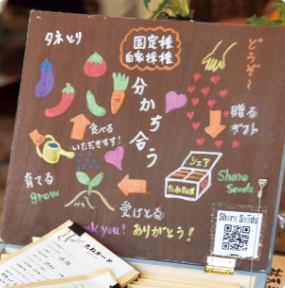 タネとり
固定種
自家採種
どうぞ〜
分かち合う
贈る
ギフト
食べる
いただきます!
シェア
たねBOX
Share
Seeds
育てる
grow
受けとる
Share Seeds
you!
ありがとう!
たねカード